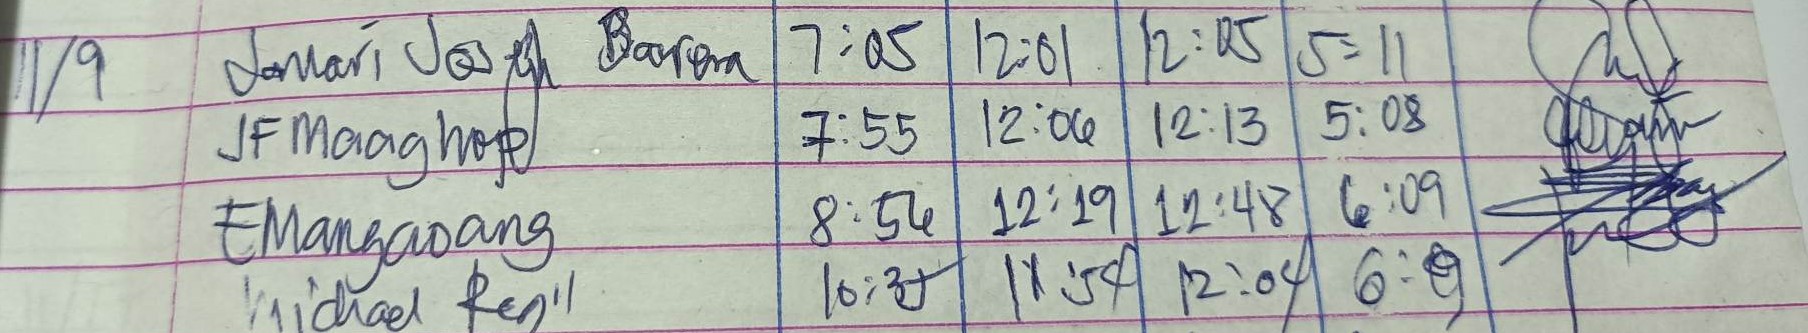 11/9 Jomari Joseph 7:05 12:01 12:05 5:11
JF Maaghop 7:55 12:06 12:13 5:08
EMangaoang 8:56 12:19 12:48 6:09
Michael 11:54 12:04